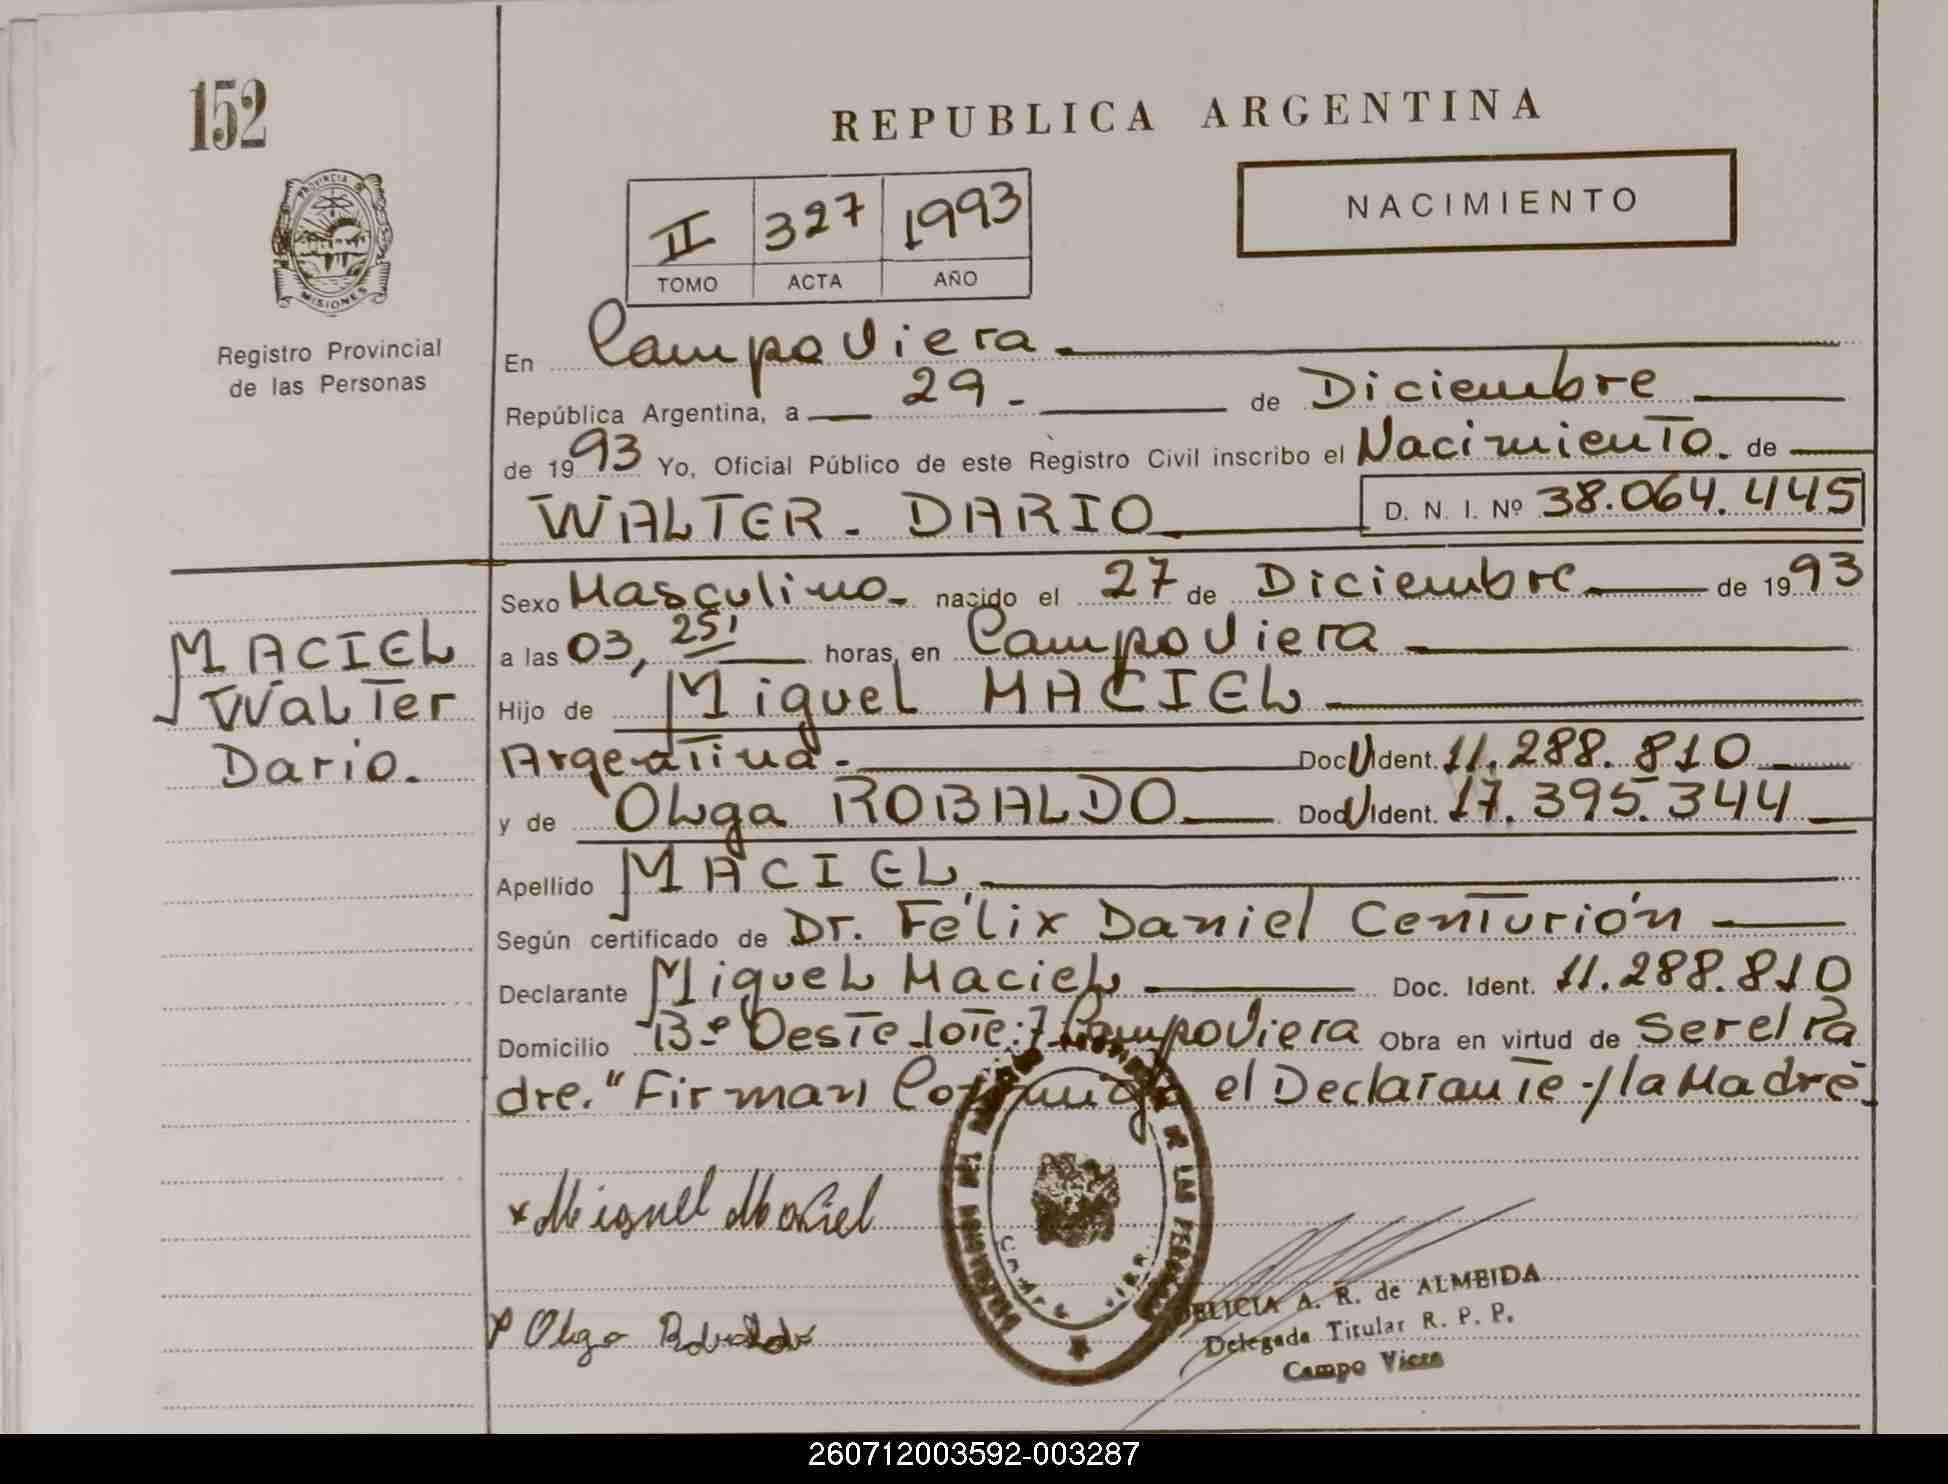 152
REPUBLICA ARGENTINA
PROVINCIA DE
MISIONES
II 327 1993
TOMO ACTA AÑO
NACIMIENTO
Registro Provincial
de las Personas
En Campo Viera
República Argentina, a 29 de Diciembre
de 1993 Yo, Oficial Público de este Registro Civil inscribo el Nacimiento. de
WALTER - DARIO D. N. I. Nº 38.064.445
MACIEL
Walter
Dario.
Sexo Masculino nacido el 27 de Diciembre de 1993
a las 03, 25' horas, en Campo Viera
Hijo de Miguel MACIEL
Argentina. Doc U Ident. 11.288.810
y de Olga ROBALDO Doc U Ident. 17.395.344
Apellido MACIEL
Según certificado de Dr. Félix Daniel Centurión
Declarante Miguel Maciel Doc. Ident. 11.288.810
Domicilio Bº Oeste lote: 7 Campo Viera Obra en virtud de Ser el Pa
dre. "Firman Conmigo el Declarante y la Madre
x Miguel Maciel
DELICIA A. R. de ALMEIDA
Delegada Titular R. P. P.
Campo Viera
x Olga Robaldo
260712003592-003287